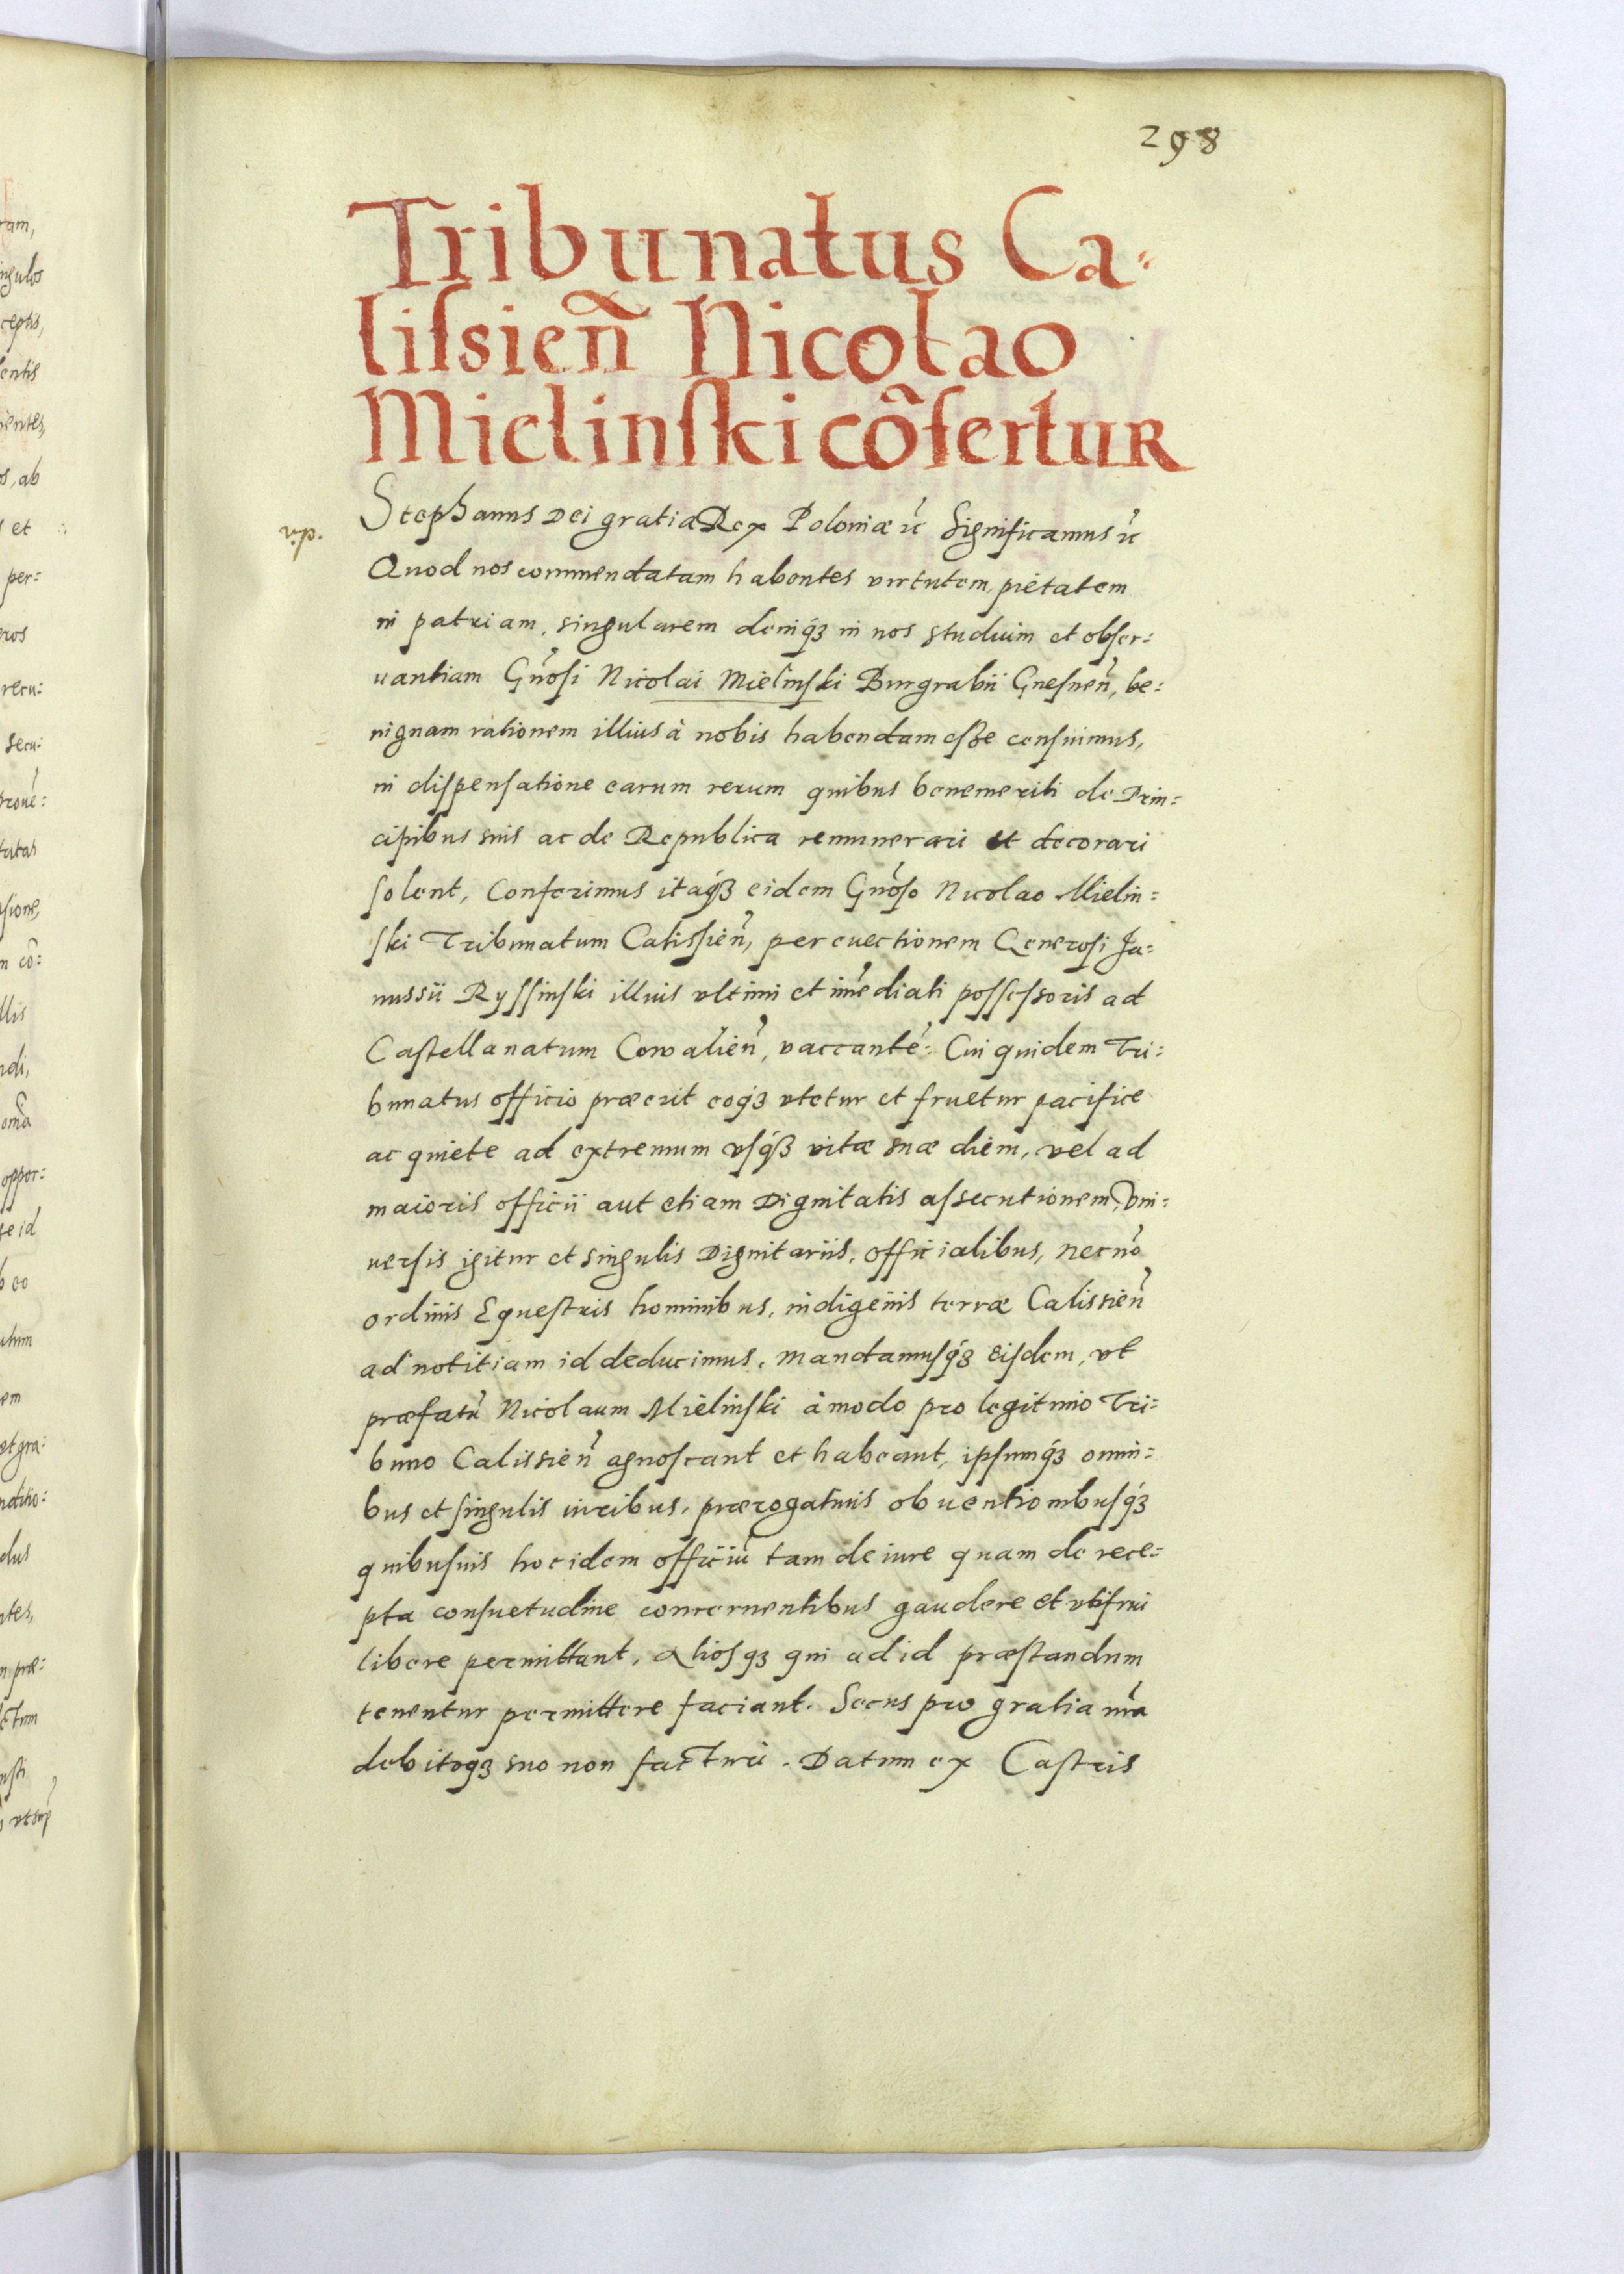 298
Tribunatus Ca-
lissień Nicolao
Mielinski cõfertur
vp.
Stephanus Dei gratia Rex Poloniæ ꝛc Significamus ꝛc
Quod nos commendatam habentes virtutem, pietatem
in patriam, singularem deniqꝫ in nos studium et obser=
uantiam Gńosi Nicolai Mielinski Burgrabii Gnesneń, be=
nignam rationem illius à nobis habendam esse censuimus,
in dispensatione earum rerum quibus benemeriti de Prin=
cipibus suis ac de Republica remunerari et decorari
solent, Conferimus itaqꝫ eidem Gńoso Nicolao Mielin=
ski Tribunatum Calissień, per euectionem Generosi Ja=
nussii Ryssinski illius vltimi et imẽdiati possessoris ad
Castellanatum Cowalień, vaccantẽ. Cui quidem Tri=
bunatus officio præerit eoqꝫ vtetur et fruetur pacifice
ac quiete ad extremum vsqꝫ vitæ suæ diem, vel ad
maioris officii aut etiam Dignitatis assecutionem, Vni=
uersis igitur et singulis Dignitariis, officialibus, necnõ
ordinis Equestris hominibus, indigenis terræ Calissień
ad notitiam id deducimus, mandamusqꝫ eisdem, vt
præfatũ Nicolaum Mielinski àmodo pro legitimo Tri=
buno Calissień agnoscant et habeant, ipsumqꝫ omni=
bus et singulis iuribus, prærogatiuis obuentionibusqꝫ
quibusuis hoc idem officiũ tam de iure quam de rece=
pta consuetudine concernentibus gaudere et vtifrui
libere permittant, aliosqꝫ qui ad id præstandum
tenentur permittere faciant. Secus pro gratia nr̃a
debitoqꝫ suo non facturi. Datum ex Castris